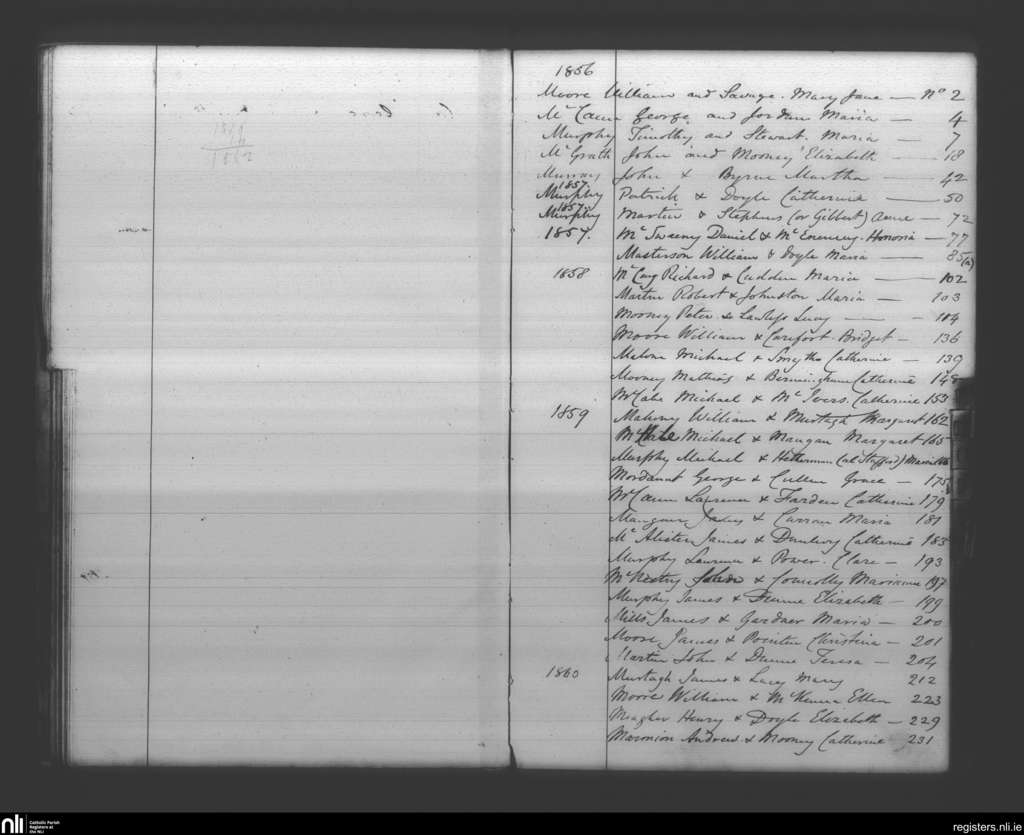 1856
Moore William and Savage Mary Jane — No 2
McCann George and Jordan Maria — 4
Murphy Timothy and Stewart Maria — 7
McGrath John and Mooney Elizabeth — 18
Murray John & Byrne Martha — 42
1857
Murphy Patrick & Doyle Catherine — 50
1857
Murphy Martin & Stephens (or Gilbert) Anne — 72
1857. McSweeny Daniel & Honoria — 77
Masterson William & Doyle Maria — 85(a)
1858 Richard & Cudden Maria — 102
Martin Robert & Johnston Maria — 103
Mooney Peter & Lawless Lucy — 104
Moore William & Bridget — 136
Malone Michael & Smythe Catherine — 139
Mooney Mathias & Bermingham Catherine 148
McCabe Michael & McIvers Catherine 153
1859 Mahony William & Murtagh Margaret 162
Michael & Mangan Margaret 165
Murphy Michael & Hetherman (al Stafford)
Mordaunt George & Cullen Grace — 175
McCann Laurence & Farden Catherine 179
James & Maria 181
McAlister James & Dunlevy Catherine 185
Murphy Laurence & Power Clare — 193
& Connolly Marianne 197
Murphy James & Elizabeth — 199
Mills James & Gardner Maria — 200
Moore James & Christina — 201
Martin John & Dunne Teresa — 204
1860 Murtagh James & Lacy Mary 212
Moore William & McKenna Ellen 223
Meagher Henry & Doyle Elizabeth — 229
Andrew & Mooney Catherine 231
nli Catholic Parish
Registers at
the NLI
registers.nli.ie